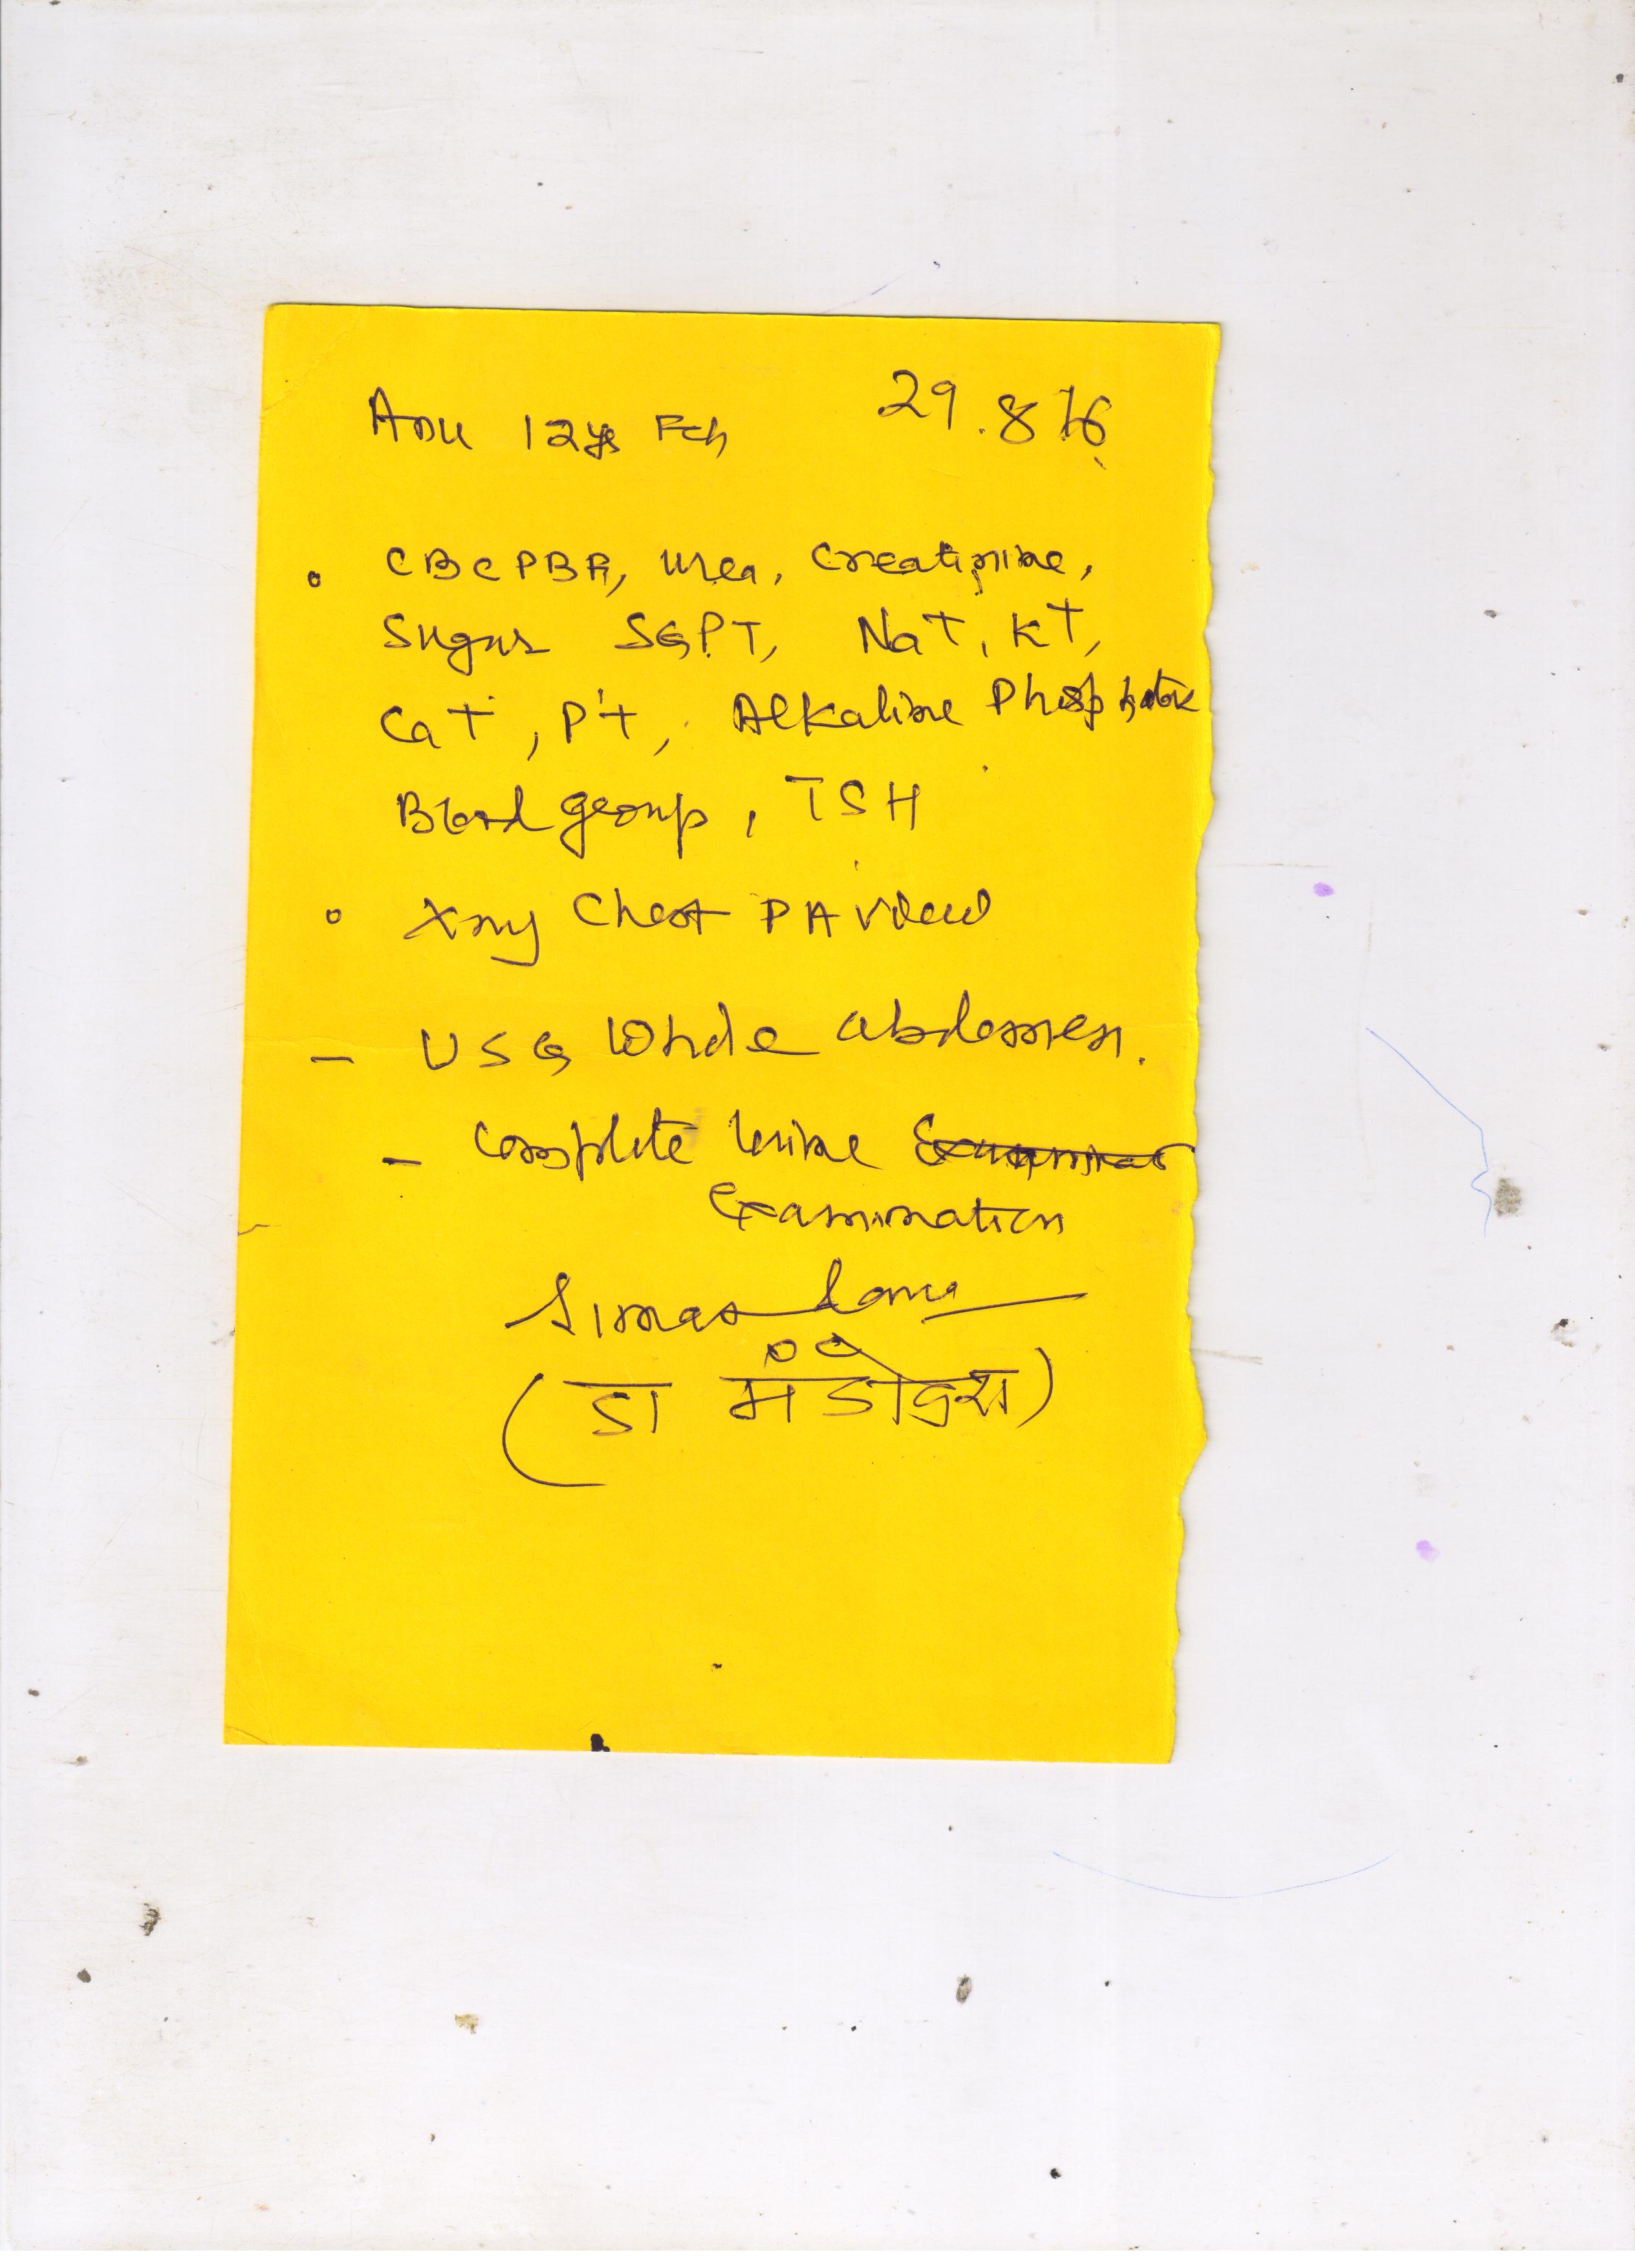 Anu 12 yrs Fch 29.8.16
CBC PBR, urea, Creatinine,
Sugar SGPT, Na+, K+,
Ca+, P+, Alkaline Phosphatase
Blood group, TSH
Xray Chest PA view
- USG Whole abdomen.
- Complete Urine
Examination
(डा